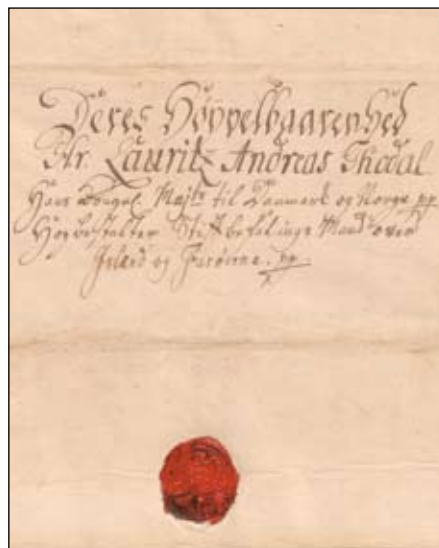 Deres Høyvelbaarenhed
Hr. Lauritz Andreas Thodal
Hans Kongel. Majts til Danmark og Norge pp
Høybestalter Stiftbefalings Mand over
Island og Færøerne. pp.